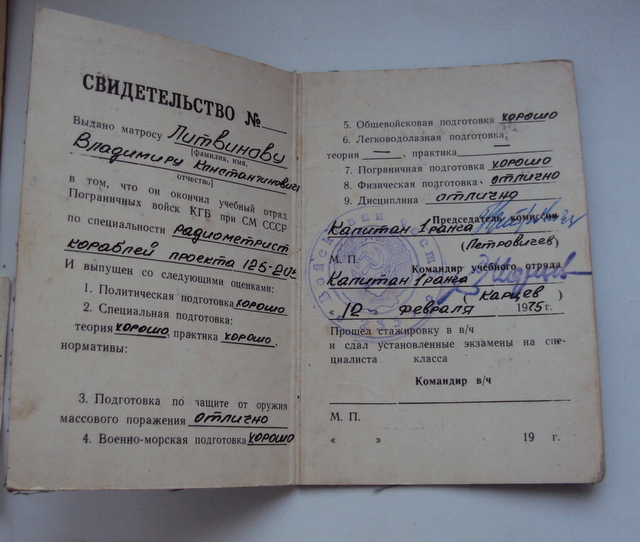 СВИДЕТЕЛЬСТВО №
Выдано матросу Литвинову
(фамилия, имя,
Владимиру Константиновичу
отчество)
в том, что он окончил учебный отряд
Пограничных войск КГБ при СМ СССР
по специальности радиометрист
кораблей проекта 125-205
И выпущен со следующими оценками:
1. Политическая подготовка хорошо
2. Специальная подготовка:
теория хорошо, практика хорошо,
нормативы:
3. Подготовка по защите от оружия
массового поражения отлично
4. Военно-морская подготовка хорошо
5. Общевойсковая подготовка хорошо
6. Легководолазная подготовка:
теория — , практика
7. Пограничная подготовка хорошо
8. Физическая подготовка отлично
9. Дисциплина отлично
Председатель комиссии
Капитан 1 ранга
(Петровичев)
М. П.
Командир учебного отряда
Капитан 1 ранга
(Карцев)
« 12 февраля 1975г.
Прошел стажировку в в/ч
и сдал установленные экзамены на спе-
циалиста класса
Командир в/ч
М. П.
« » 19 г.